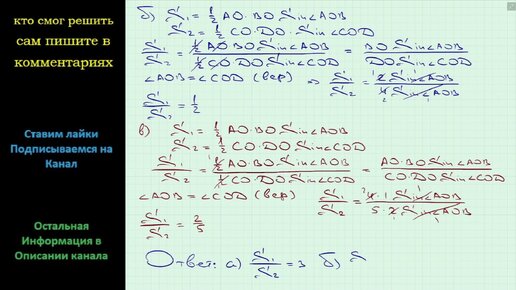 кто смог решить
сам пишите в
комментариях
Ставим лайки
Подписываемся на
Канал
Остальная
Информация в
Описании канала
б) S₁ = 1/2 AO·BO Sin∠AOB
S₂ = 1/2 CO·DO·Sin∠COD
S₁/S₂ = (1/2 AO·BO Sin∠AOB)/(1/2 CO·DO Sin∠COD) = (BO Sin∠AOB)/(DO Sin∠COD)
∠AOB = ∠COD (вер) ⇒ S₁/S₂ = (2 Sin∠AOB)/(4 Sin∠AOB)
S₁/S₂ = 1/2
в) S₁ = 1/2 AO·BO Sin∠AOB
S₂ = 1/2 CO·DO·Sin∠COD
S₁/S₂ = (1/2 AO·BO·Sin∠AOB)/(1/2 CO·DO·Sin∠COD) = (AO·BO Sin∠AOB)/(CO·DO Sin∠COD)
∠AOB = ∠COD (вер) S₁/S₂ = (4·1 Sin∠AOB)/(5·2 Sin∠AOB)
S₁/S₂ = 2/5
Ответ: а) S₁/S₂ = 3 б) S